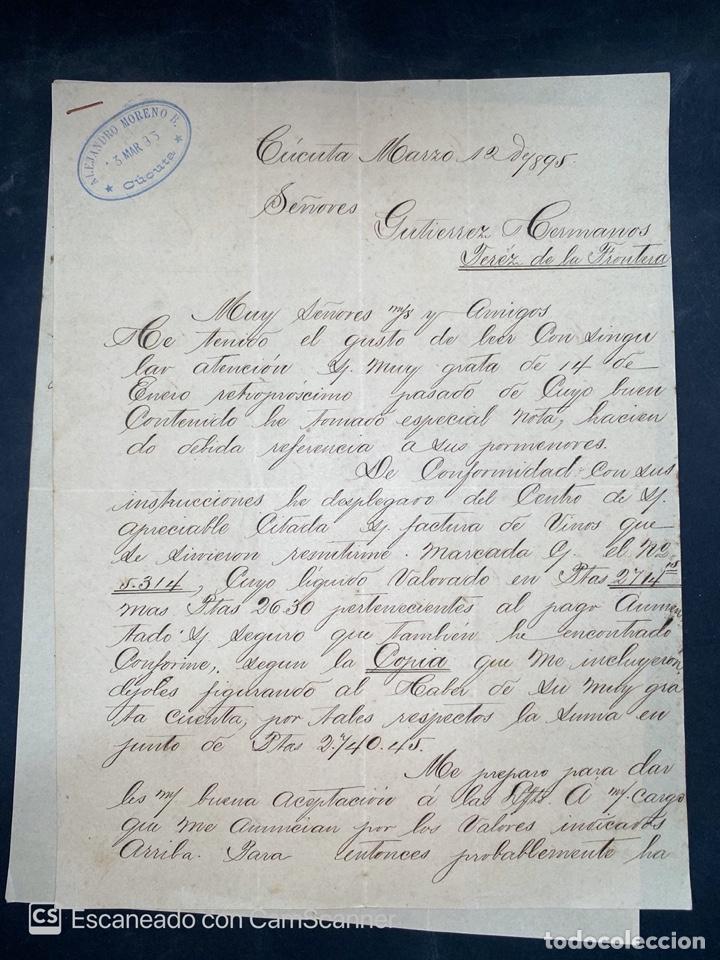 ALEJANDRO MORENO B.
3 MAR 95
Cúcuta
Cúcuta Marzo 12 de 1895.
Señores
Gutierrez Hermanos
Jeréz de la Frontera
Muy Señores m/s y Amigos
He tenido el gusto de leer Con singu
lar atención S/. muy grata de 14 de
Enero retropróscimo pasado de Cuyo buen
Contenido he tomado especial nota, hacien
do debida referencia a sus pormenores.
De Conformidad con sus
instrucciones he desplegado del Centro de S/.
apreciable Citada S/. factura de Vinos que
se sirvieron remitirme. Marcada G. el No
5.314, Cuyo líquido Valorado en Ptas 2714 15
mas Ptas 26.30 pertenecientes al pago Aumen
tado S/ seguro que También he encontrado
Conforme, segun la Copia que me incluyeron,
déjoles figurando al Haber de su muy gra
ta cuenta, por tales respectos la suma en
junto de Ptas 2.740.45.
Me preparo para dar
les m/ buena aceptación á las A m/. cargo
que me Anuncian por los Valores indicados
Arriba. Para entonces probablemente ha
CS Escaneado con CamScanner
todocoleccion